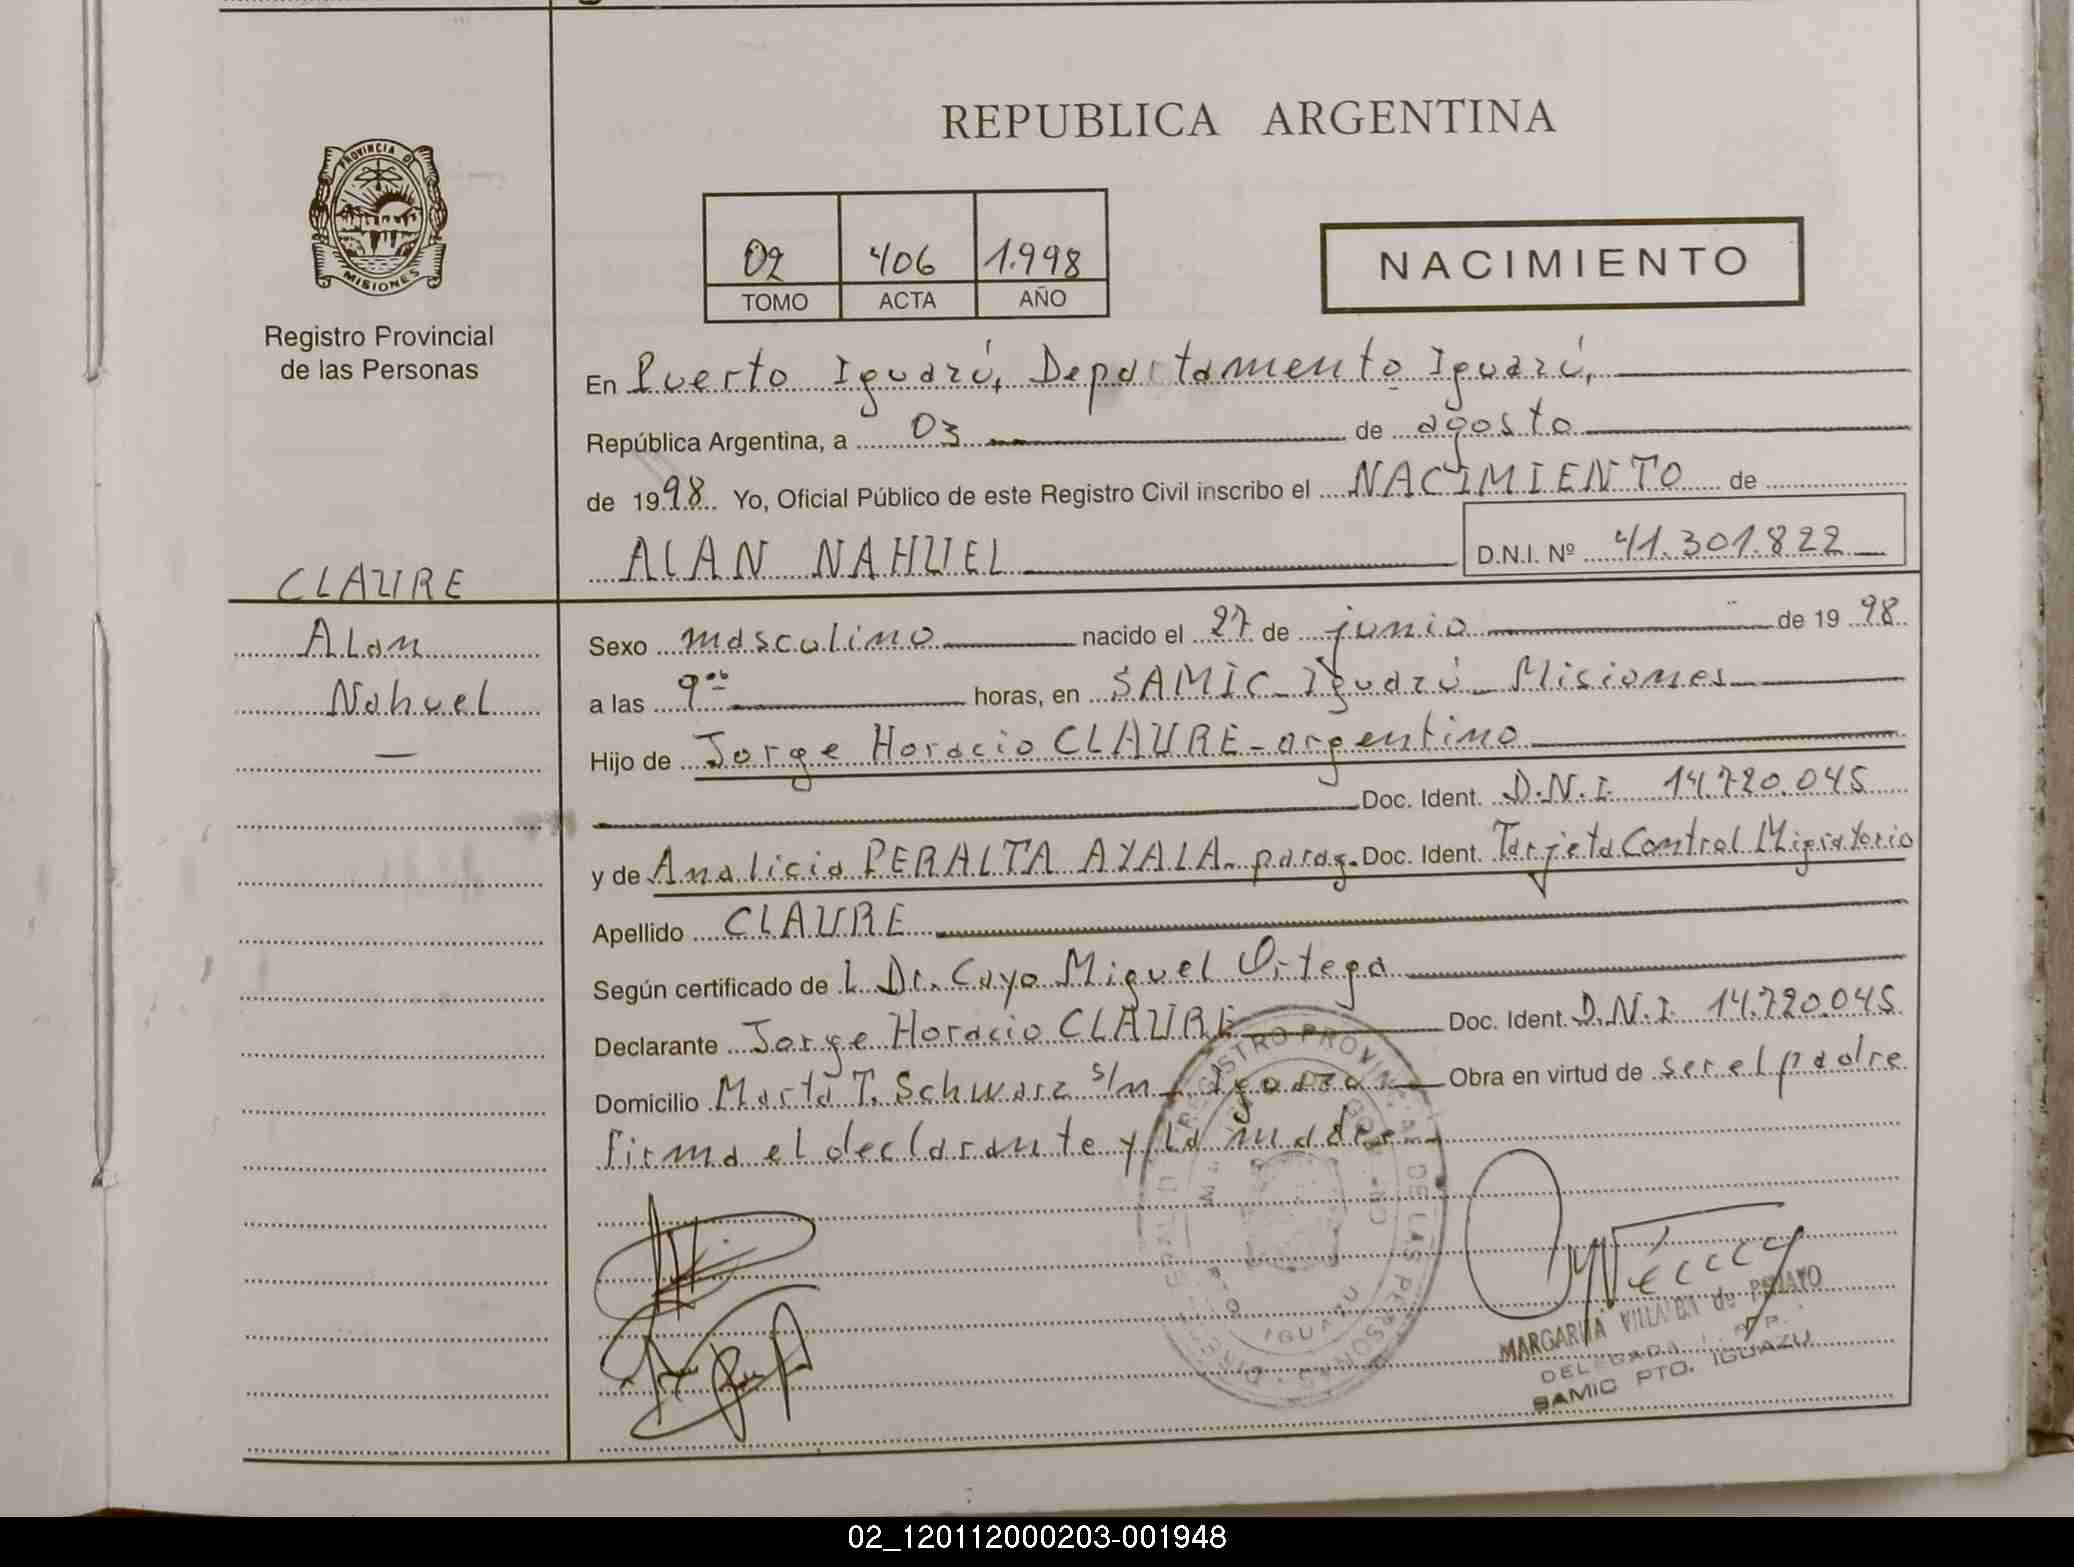 REPUBLICA ARGENTINA
PROVINCIA DE
MISIONES
Registro Provincial
de las Personas
02 406 1.998
TOMO ACTA AÑO
NACIMIENTO
En Puerto Iguazú, Departamento Iguazú,
República Argentina, a 03 de agosto
de 1998 Yo, Oficial Público de este Registro Civil inscribo el NACIMIENTO de
ALAN NAHUEL D.N.I. Nº 41.301.822
CLAURE
Alan
Nahuel
Sexo masculino nacido el 27 de junio de 1998
a las 9 horas, en SAMIC - Iguazú - Misiones
Hijo de Jorge Horacio CLAURE - argentino
Doc. Ident. D.N.I. 14.720.045
y de Analicia PERALTA AYALA - parag. Doc. Ident. Tarjeta Control Migratorio
Apellido CLAURE
Según certificado de L Dr. Cayo Miguel Ortega
Declarante Jorge Horacio CLAURE Doc. Ident. D.N.I 14.720.045
Domicilio Marta T. Schwarz s/n - Iguazú Obra en virtud de ser el padre
firma el declarante y la madre
REGISTRO PROVINCIAL DE LAS PERSONAS
IGUAZU
MARGARITA VILLALBA de
DELEGADA
SAMIC PTO. IGUAZU
02_120112000203-001948